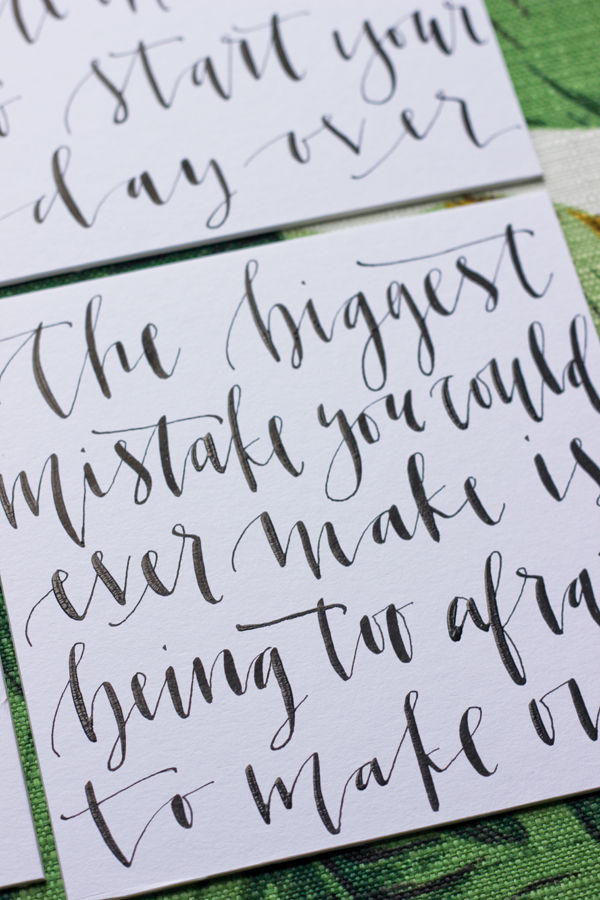 start your
day over
the biggest
mistake you could
ever make is
being too afra
to make